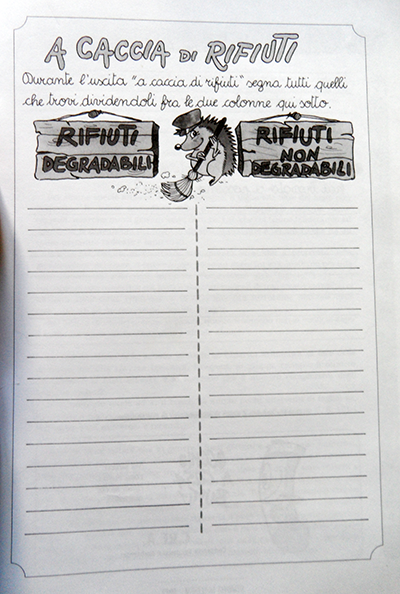 A CACCIA DI RIFIUTI
Durante l'uscita "a caccia di rifiuti" segna tutti quelli
che trovi dividendoli fra le due colonne qui sotto.
RIFIUTI
DEGRADABILI
RIFIUTI
NON
DEGRADABILI